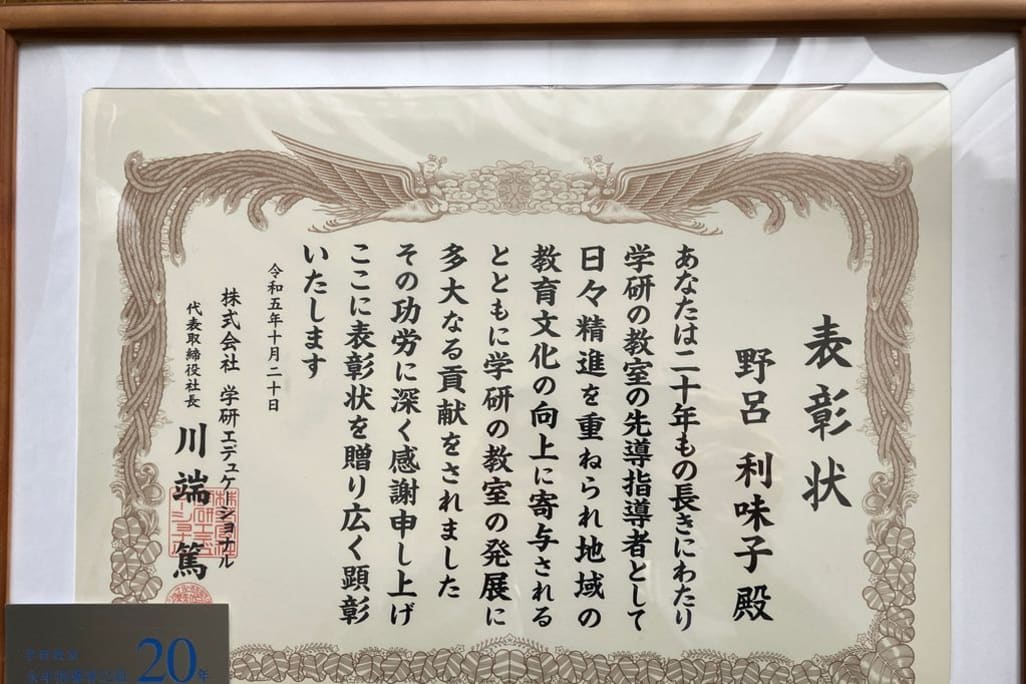 表彰状
野呂 利味子 殿
あなたは二十年もの長きにわたり
学研の教室の先導指導者として
日々精進を重ねられ地域の
教育文化の向上に寄与される
とともに学研の教室の発展に
多大なる貢献をされました
その功労に深く感謝申し上げ
ここに表彰状を贈り広く顕彰
いたします
令和五年十月二十日
株式会社 学研エデュケーショナル
代表取締役社長 川端 篤
20年